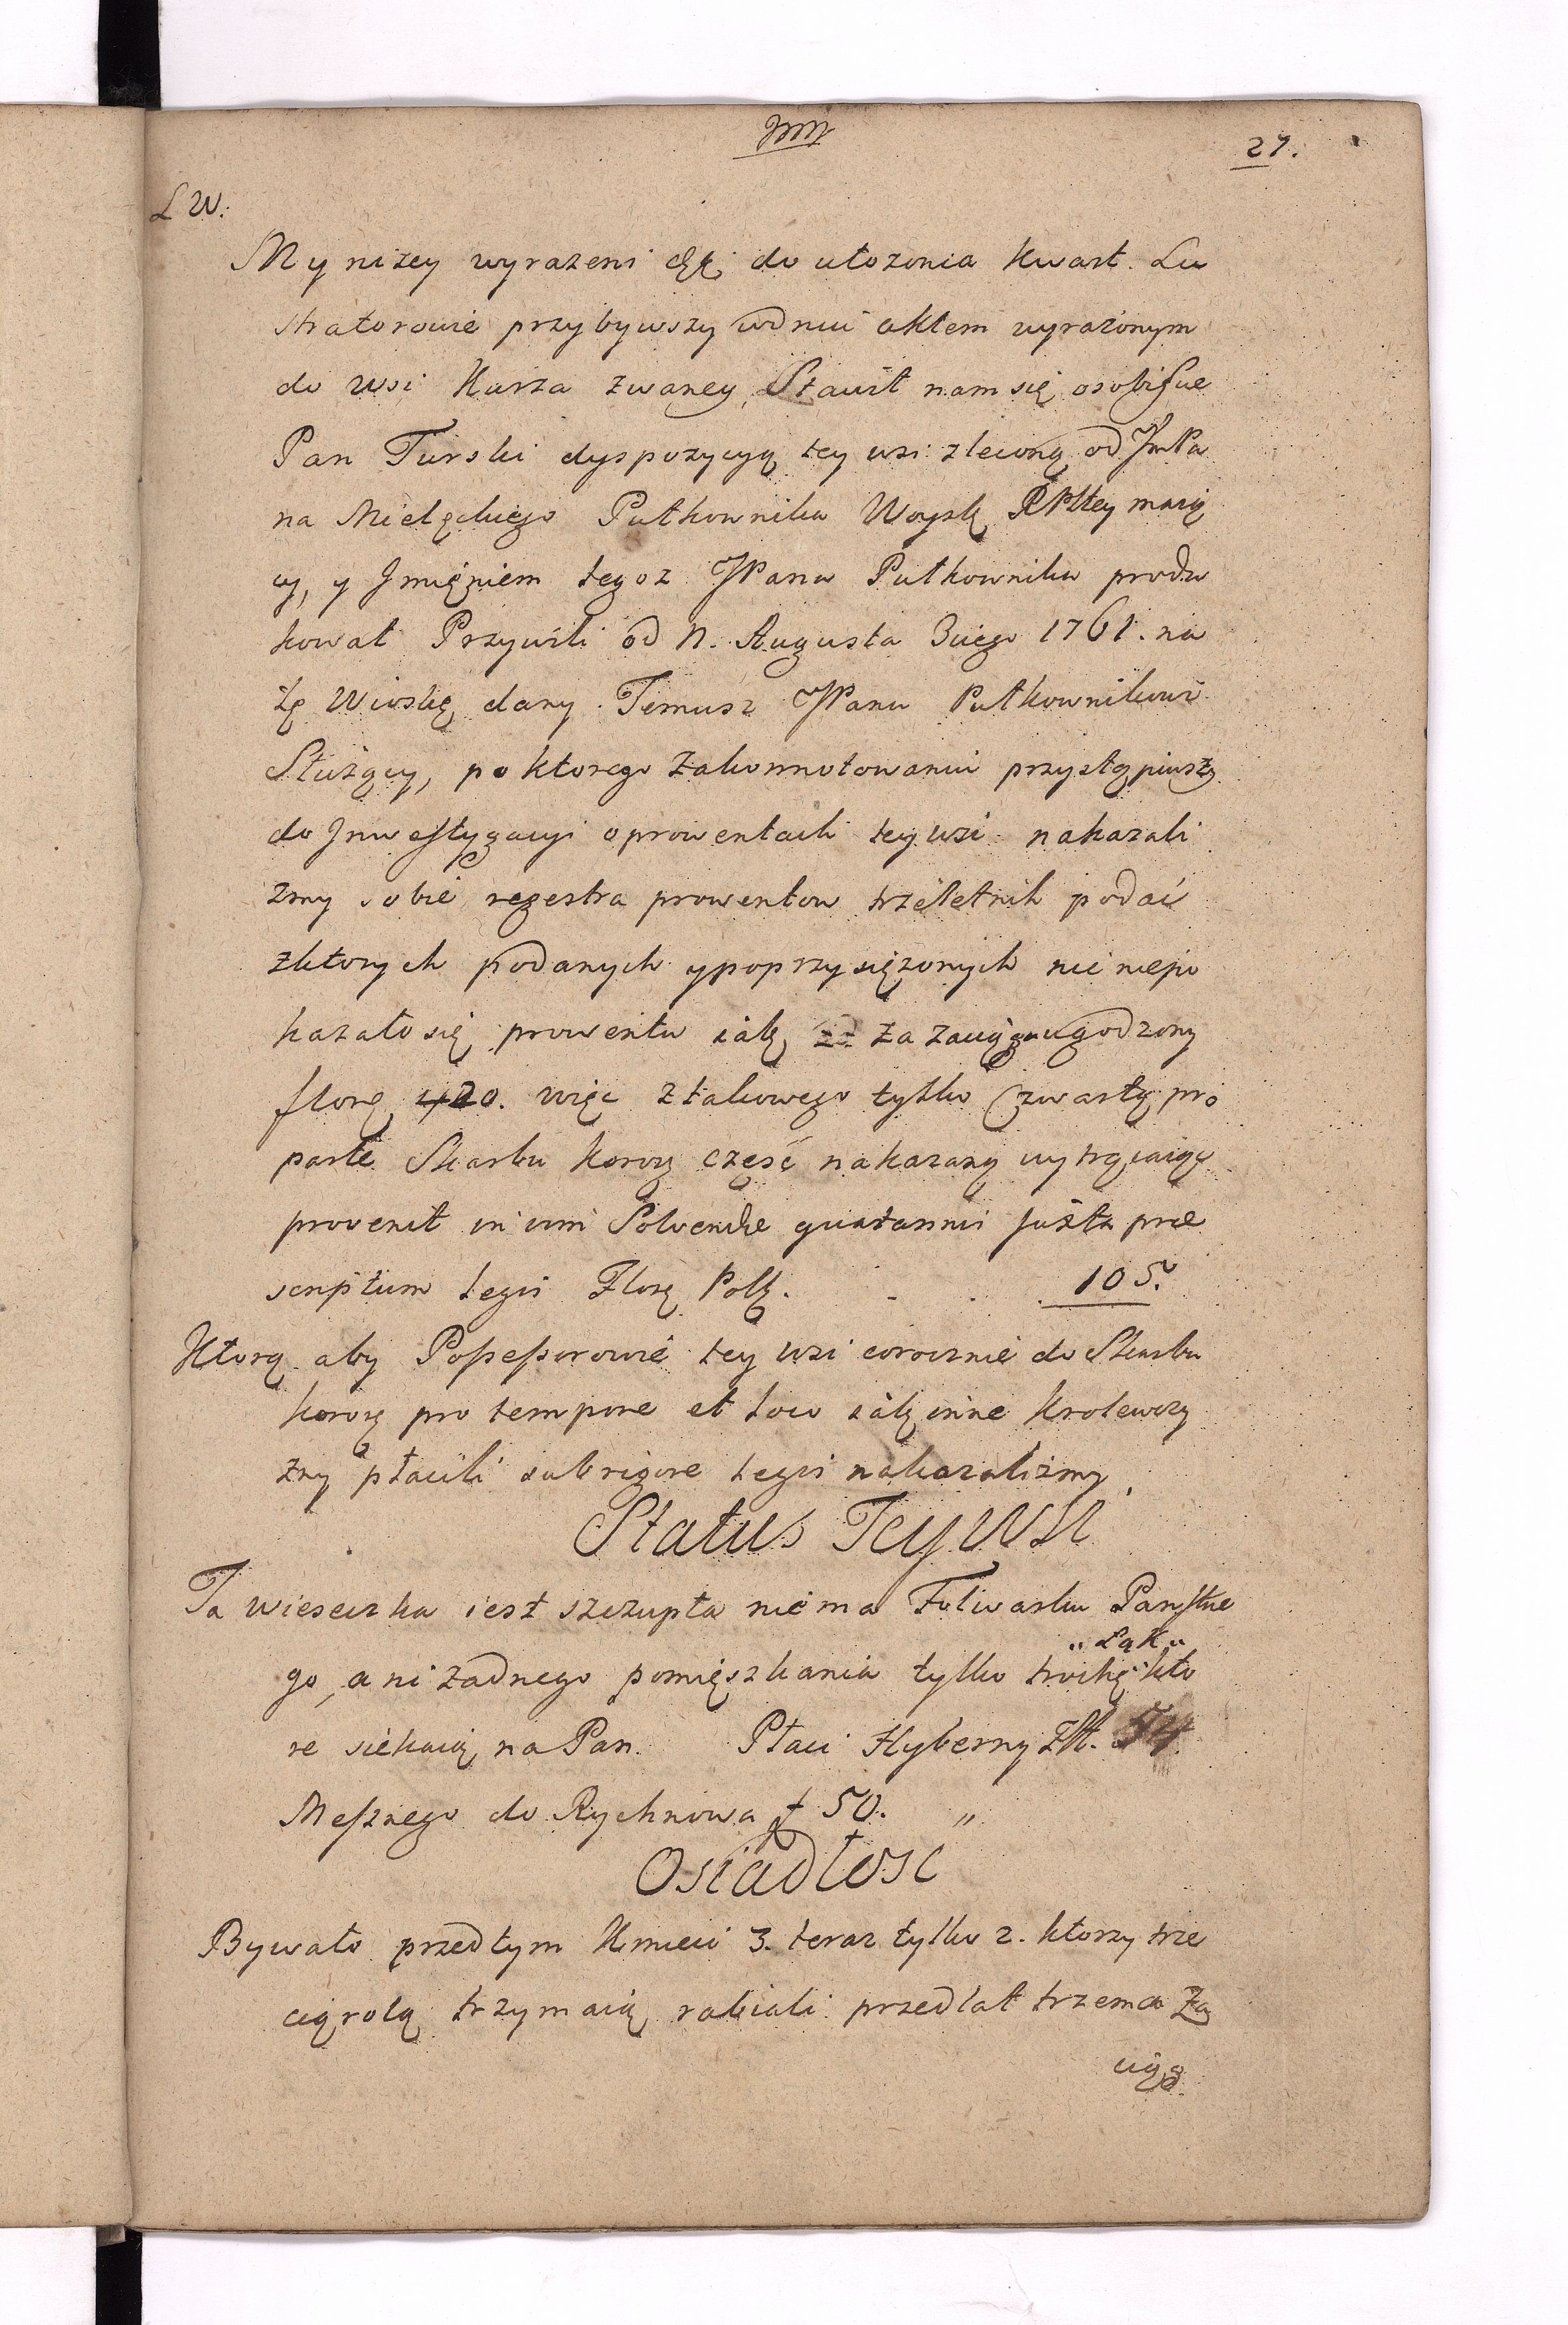 27.
L W.
My nizey wyrazeni do utozenia kwart. Lu
stratorowie przybywszy w dniu aktem wyrażonym
do wsi Kurza zwaney, Stawił nam się osobiscie
Pan Turski dyspozycyą tey wsi zleconą od JmPa
na Mielęckiego Pułkownika Woysk RPltey maią
cy, y Jmięniem tegoz JPana Pułkownika produ
kował Przywili od N. Augusta 3ciego 1761. na
tę Wioskę dany Temusz JPanu Pułkownikowi
Służący, po ktorego zakonnotowaniu przystąpiwszy
do Jnwestygacyi o prowentach tey wsi nakazali
zmy sobie regestra prowentow trzeletnih podać
zktorych podanych y poprzysiężonych nic niepo
kazało się prowentu iak za zaciąg ugodzony
flore 420. więc ztakowego tylko czwartą pro
parte Skarbu koron część nakazaną wytrącaiąc
provenit in vim Solvendae quotannis juxta prae
scriptum legis Flore Polk. . . . 105.
Ktorą aby Possessorowie tey wsi corocznie do Skarbu
koron pro tempore et loco iak inne Krolewszy
zny płacili sub rigore legis nakazalizmy.
Status Tey Wsi
Ta wieseczka iest szczupła niema Folwarku Panstwe
" Łąk "
go, ani żadnego pomięszkania tylko trochę kto
re siekaią na Pan. Płaci Hyberny Złt. 54
Mesznego do Rychnowa f 50. "
Osiadłosc
Bywało przedtym Kmieci 3. teraz tylko 2. ktorzy trze
cią rolą trzymaią rabiali przedlat trzema Za
ciąg